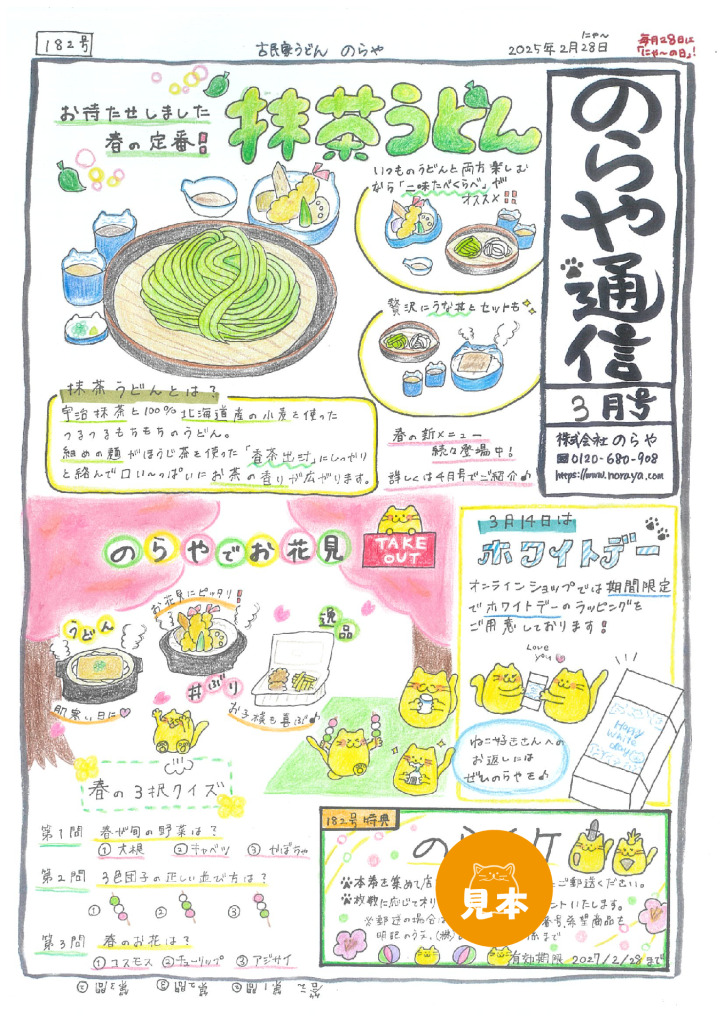 182号
古民家うどん のらや
にゃ〜
2025年2月28日
毎月28日は
「にゃ〜の日」!
のらや通信
3月号
株式会社 のらや
0120-680-908
https://www.noraya.com
お待たせしました
春の定番!!
抹茶うどん
いつものうどんと両方楽しむ
なら「二味たべくらべ」が
オススメ!!
贅沢にうな丼とセットも
抹茶うどんとは?
宇治抹茶と100%北海道産の小麦を使った
つるつるもちもちのうどん。
細めの麺がほうじ茶を使った「春茶出汁」にしっかり
と絡んで口い〜っぱいにお茶の香りが広がります。
春の新メニュー
続々登場中!
詳しくは4月号でご紹介♪
のらやでお花見
TAKE
OUT
うどん
肌寒い日に
お花見にピッタリ!
丼ぶり
逸品
お子様も喜ぶ♪
3月14日は
ホワイトデー
オンラインショップでは期間限定
でホワイトデーのラッピングを
ご用意しております!
Love
you
Happy
White
day
ねこ好きさんへの
お返しには
ぜひのらやを♪
春の3択クイズ
第1問 春が旬の野菜は?
①大根 ②キャベツ ③かぼちゃ
第2問 3色団子の正しい並び方は?
① ② ③
第3問 春のお花は?
①コスモス ②チューリップ ③アジサイ
答え 第1問② 第2問③ 第3問②
182号特典
のらチケ
見本
本券を集めて店
ご郵送ください。
枚数に応じてオリ
ントいたします。
※郵送の場合は
番号希望商品を
明記のうえ、(株)
係まで
有効期限 2027/2/28まで